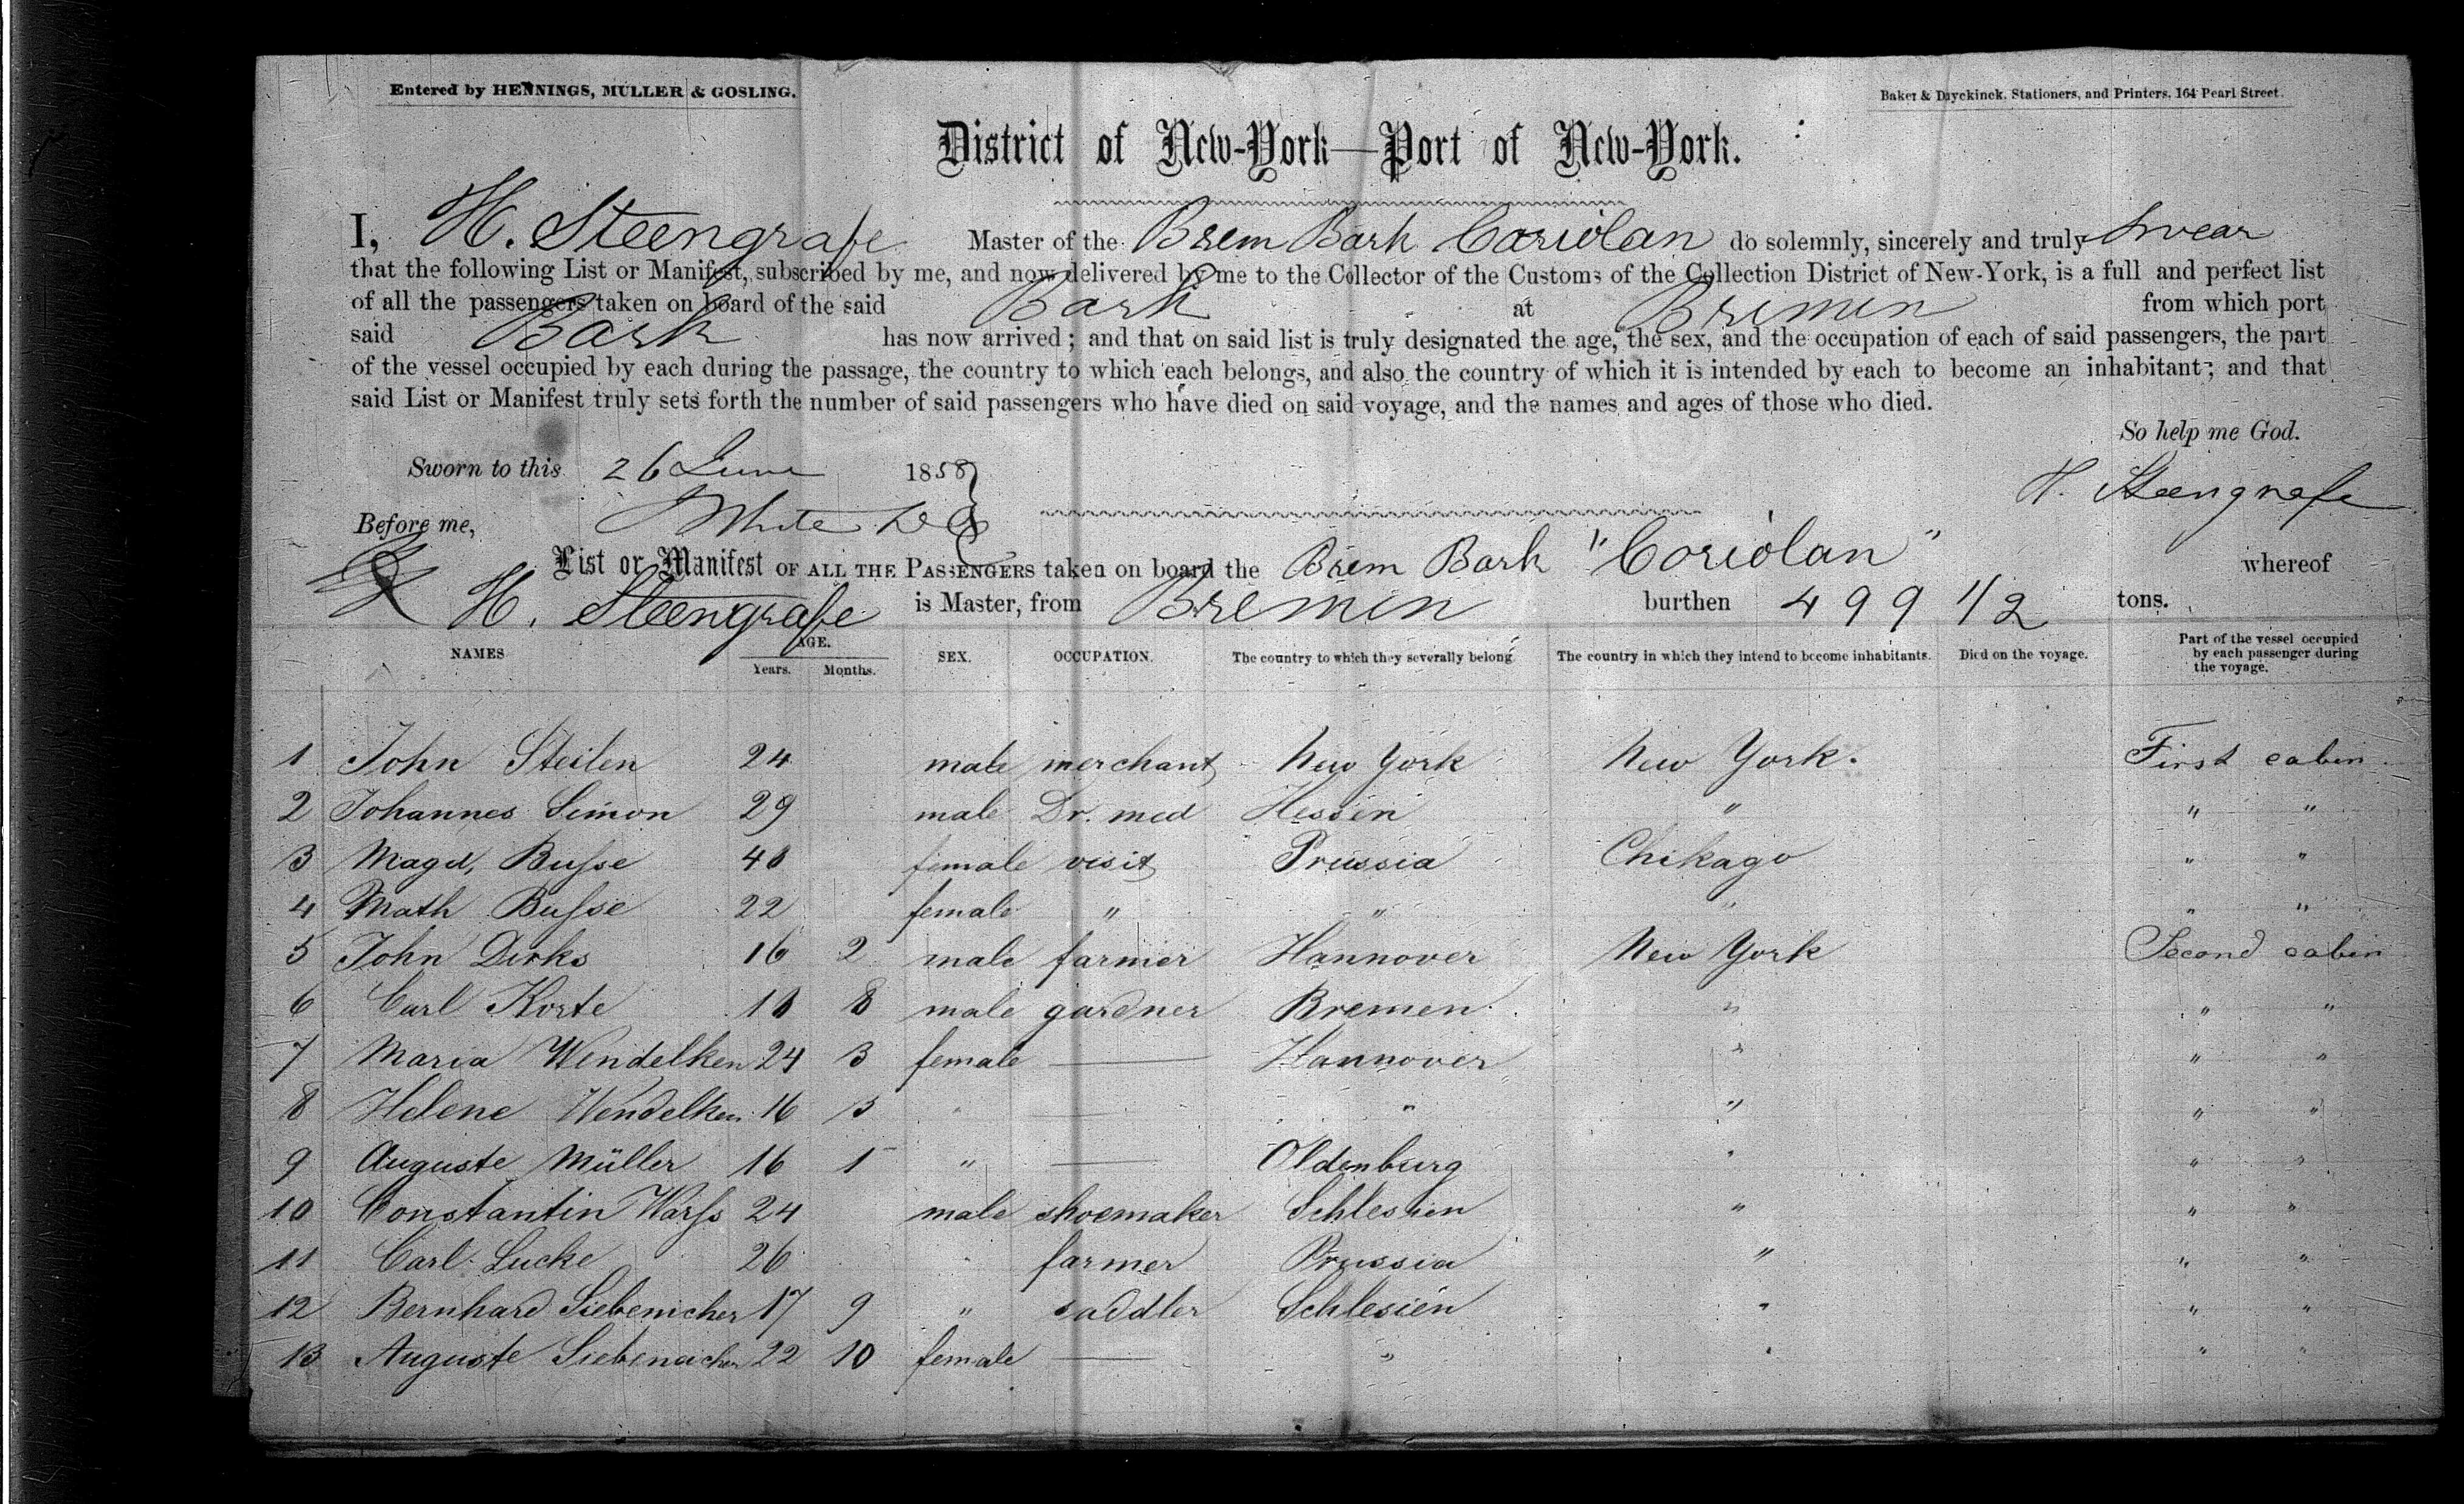 Entered by HENNINGS, MULLER & GOSLING.
Baker & Duyckinck, Stationers, and Printers, 164 Pearl Street.
District of New-York—Port of New-York.
I, H. Steengrafe Master of the Brem Bark Coriolan do solemnly, sincerely and truly swear
that the following List or Manifest, subscribed by me, and now delivered by me to the Collector of the Customs of the Collection District of New-York, is a full and perfect list
of all the passengers taken on board of the said Bark at Bremen from which port
said Bark has now arrived; and that on said list is truly designated the age, the sex, and the occupation of each of said passengers, the part
of the vessel occupied by each during the passage, the country to which each belongs, and also the country of which it is intended by each to become an inhabitant; and that
said List or Manifest truly sets forth the number of said passengers who have died on said voyage, and the names and ages of those who died.
So help me God.
Sworn to this 26 June 1858
H. Steengrafe
Before me, White
List or Manifest OF ALL THE PASSENGERS taken on board the Brem Bark "Coriolan" whereof
H. Steengrafe is Master, from Bremen burthen 499 1/2 tons.
NAMES AGE. Years. Months. SEX. OCCUPATION. The country to which they severally belong. The country in which they intend to become inhabitants. Died on the voyage. Part of the vessel occupied by each passenger during the voyage.
1 John Steilen 24 male merchant New York New York. First cabin.
2 Johannes Simon 29 male Dr. med Hessen " " "
3 Magd, Busse female visit Prussia Chikago " "
4 Math Busse 22 female " " " " "
5 John Dirks 16 2 male farmer Hannover New York Second cabin
6 Carl Korte 8 male gardner Bremen " " "
7 Maria Wendelken 24 3 female — Hannover " " "
8 Helene Wendelken 16 3 " — " " " "
9 Auguste Müller 16 1 " — Oldenburg " " "
10 Constantin 24 male shoemaker Schlesien " " "
11 Carl Lucke 26 " farmer Prussia " " "
12 Bernhard Siebeneicher 17 9 " saddler Schlesien " " "
13 Auguste Siebeneicher 22 10 female — " " " "